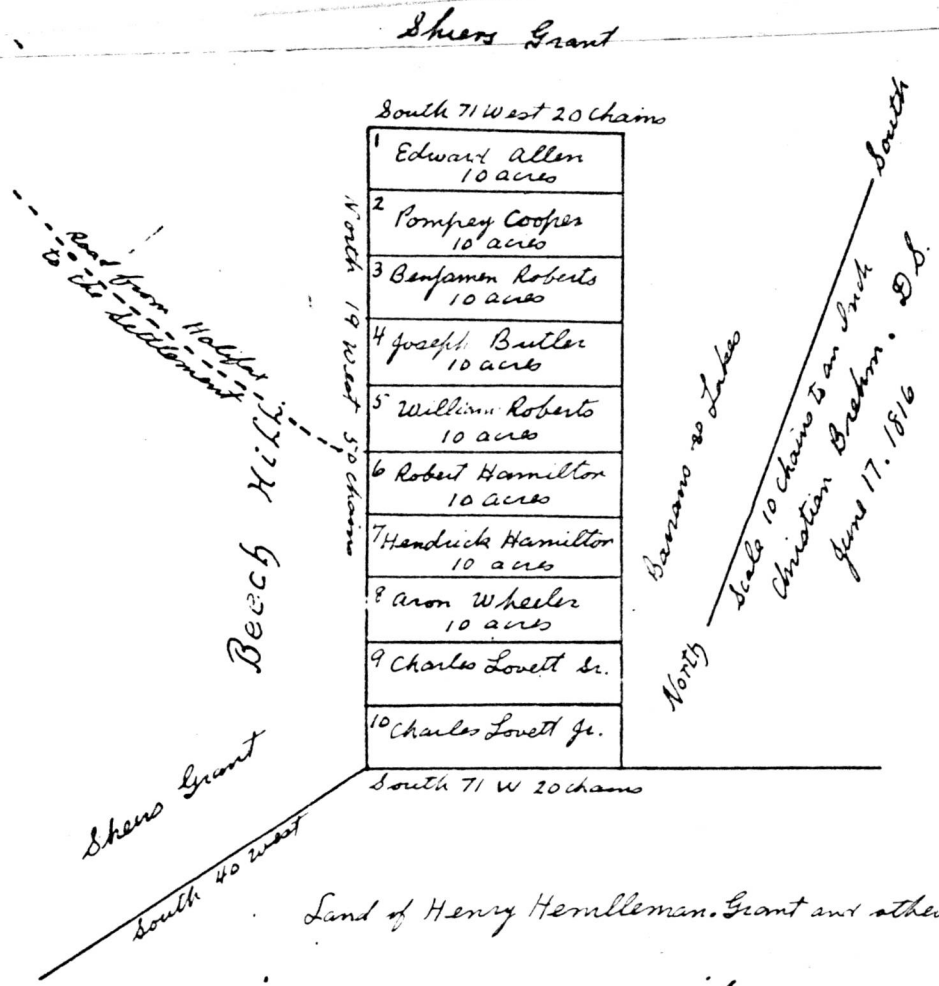 Shiers Grant
South 71 West 20 Chains
1 Edward Allen
10 acres
2 Pompey Cooper
10 acres
3 Benjamen Roberts
10 acres
4 Joseph Butler
10 acres
5 William Roberts
10 acres
6 Robert Hamilton
10 acres
7 Hendrick Hamilton
10 acres
8 Aron Wheeler
10 acres
9 Charles Lovett Sr.
10 Charles Lovett Jr.
South 71 W 20 chains
North 19 West 50 Chains
Road from Halifax
to the Settlement
Beech Hill
Shiers Grant
South 40 West
Barrans Lakes
North
South
Scale 10 Chains to an Inch
Christian Brehm. D.S.
June 17. 1816
Land of Henry Grant and other